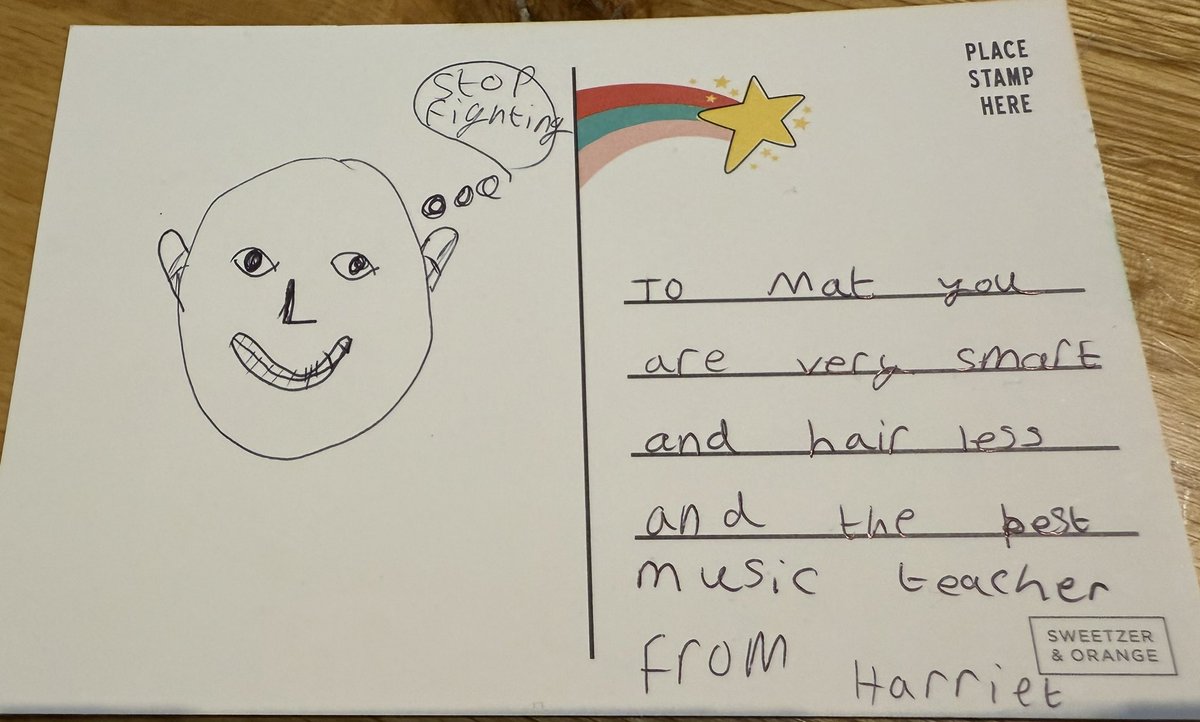 Stop
Fighting
PLACE
STAMP
HERE
To Mat you
are very smart
and hair less
and the best
music teacher
From Harriet
SWEETZER
& ORANGE